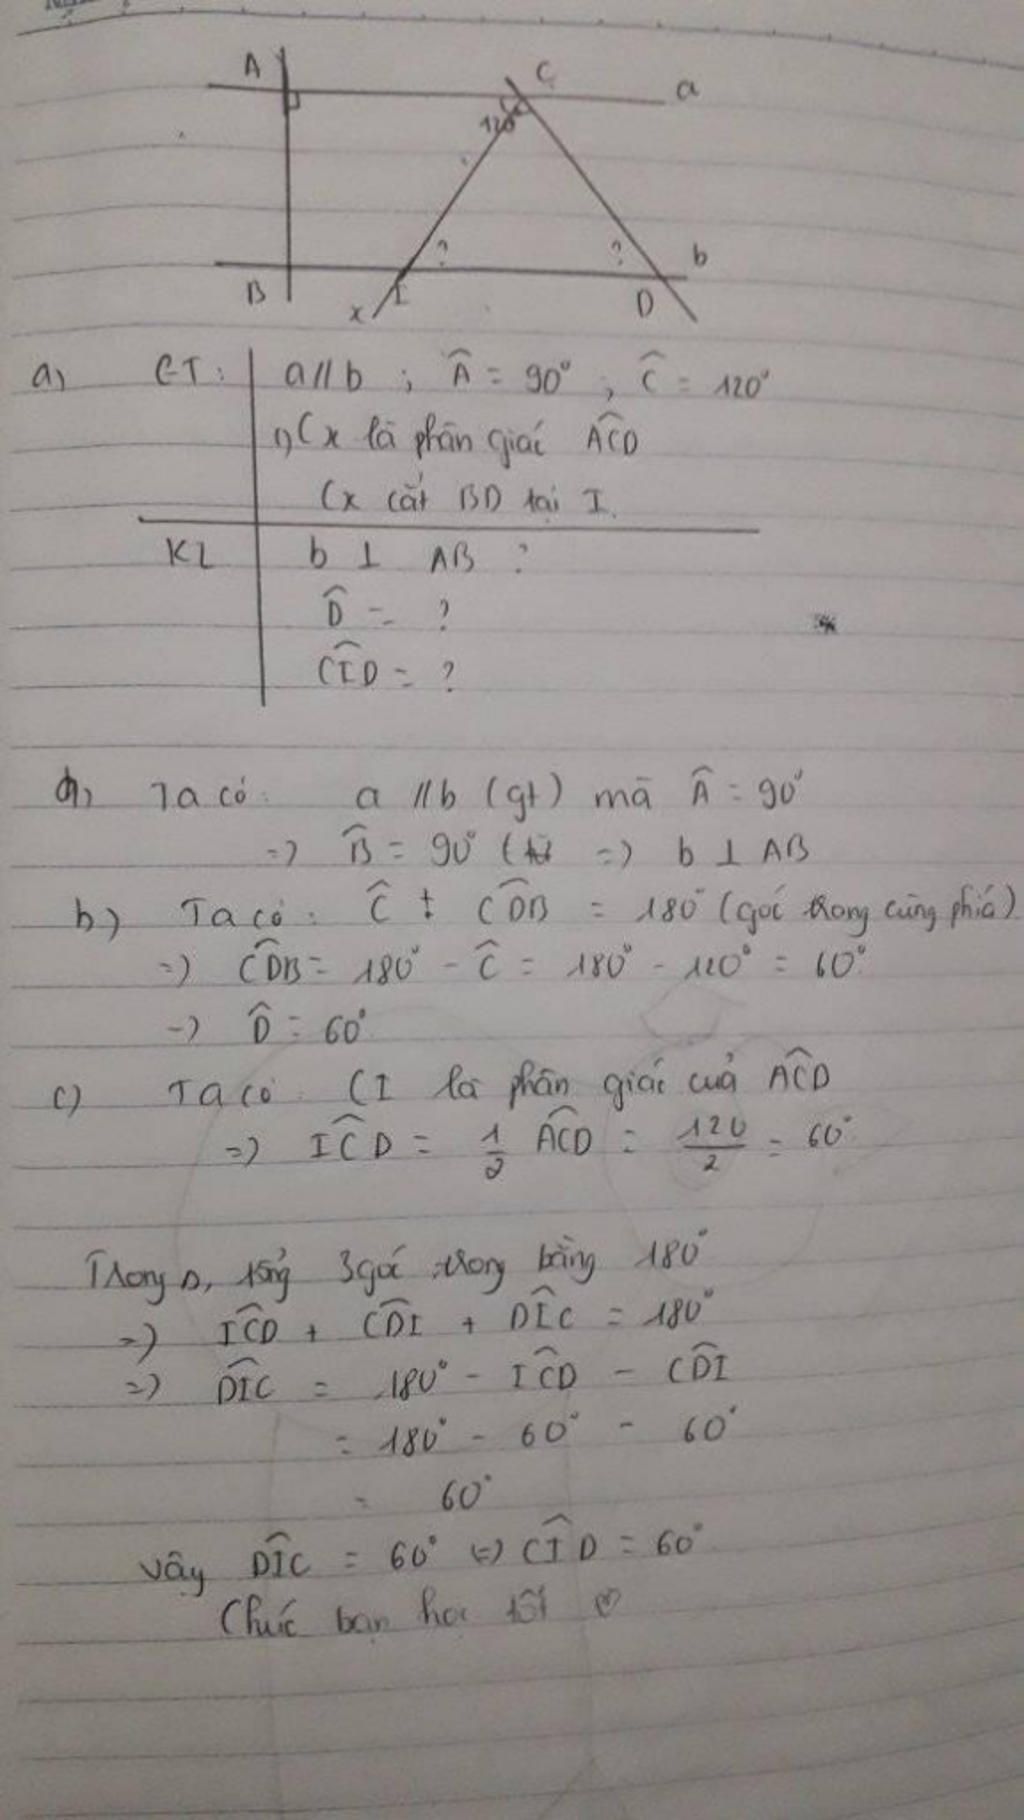 A C a
120°
? ? b
B x I D
a) GT: a // b ; Â = 90° ; Ĉ = 120°
Cx là phân giác ACD
Cx cắt BD tại I.
KL b ⊥ AB ?
D̂ = ?
CID = ?
a) Ta có: a // b (gt) mà Â = 90°
=> B̂ = 90° => b ⊥ AB
b) Ta có: Ĉ + CDB = 180° (góc trong cùng phía)
=> CDB = 180° - Ĉ = 180° - 120° = 60°
=> D̂ = 60°
c) Ta có CI là phân giác của ACD
=> ICD = 1/2 ACD = 120/2 = 60°
Trong Δ, tổng 3 góc trong bằng 180°
=> ICD + CDI + DIC = 180°
=> DIC = 180° - ICD - CDI
= 180° - 60° - 60°
= 60°
Vậy DIC = 60° <=> CID = 60°
Chúc bạn học tốt ♡